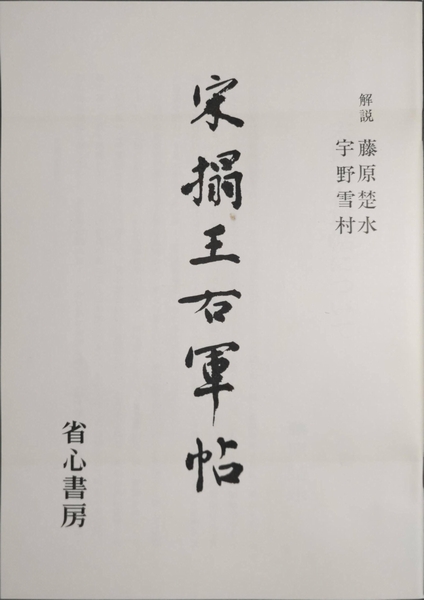 解説 藤原楚水
宇野雪村
宋搨王右軍帖
省心書房